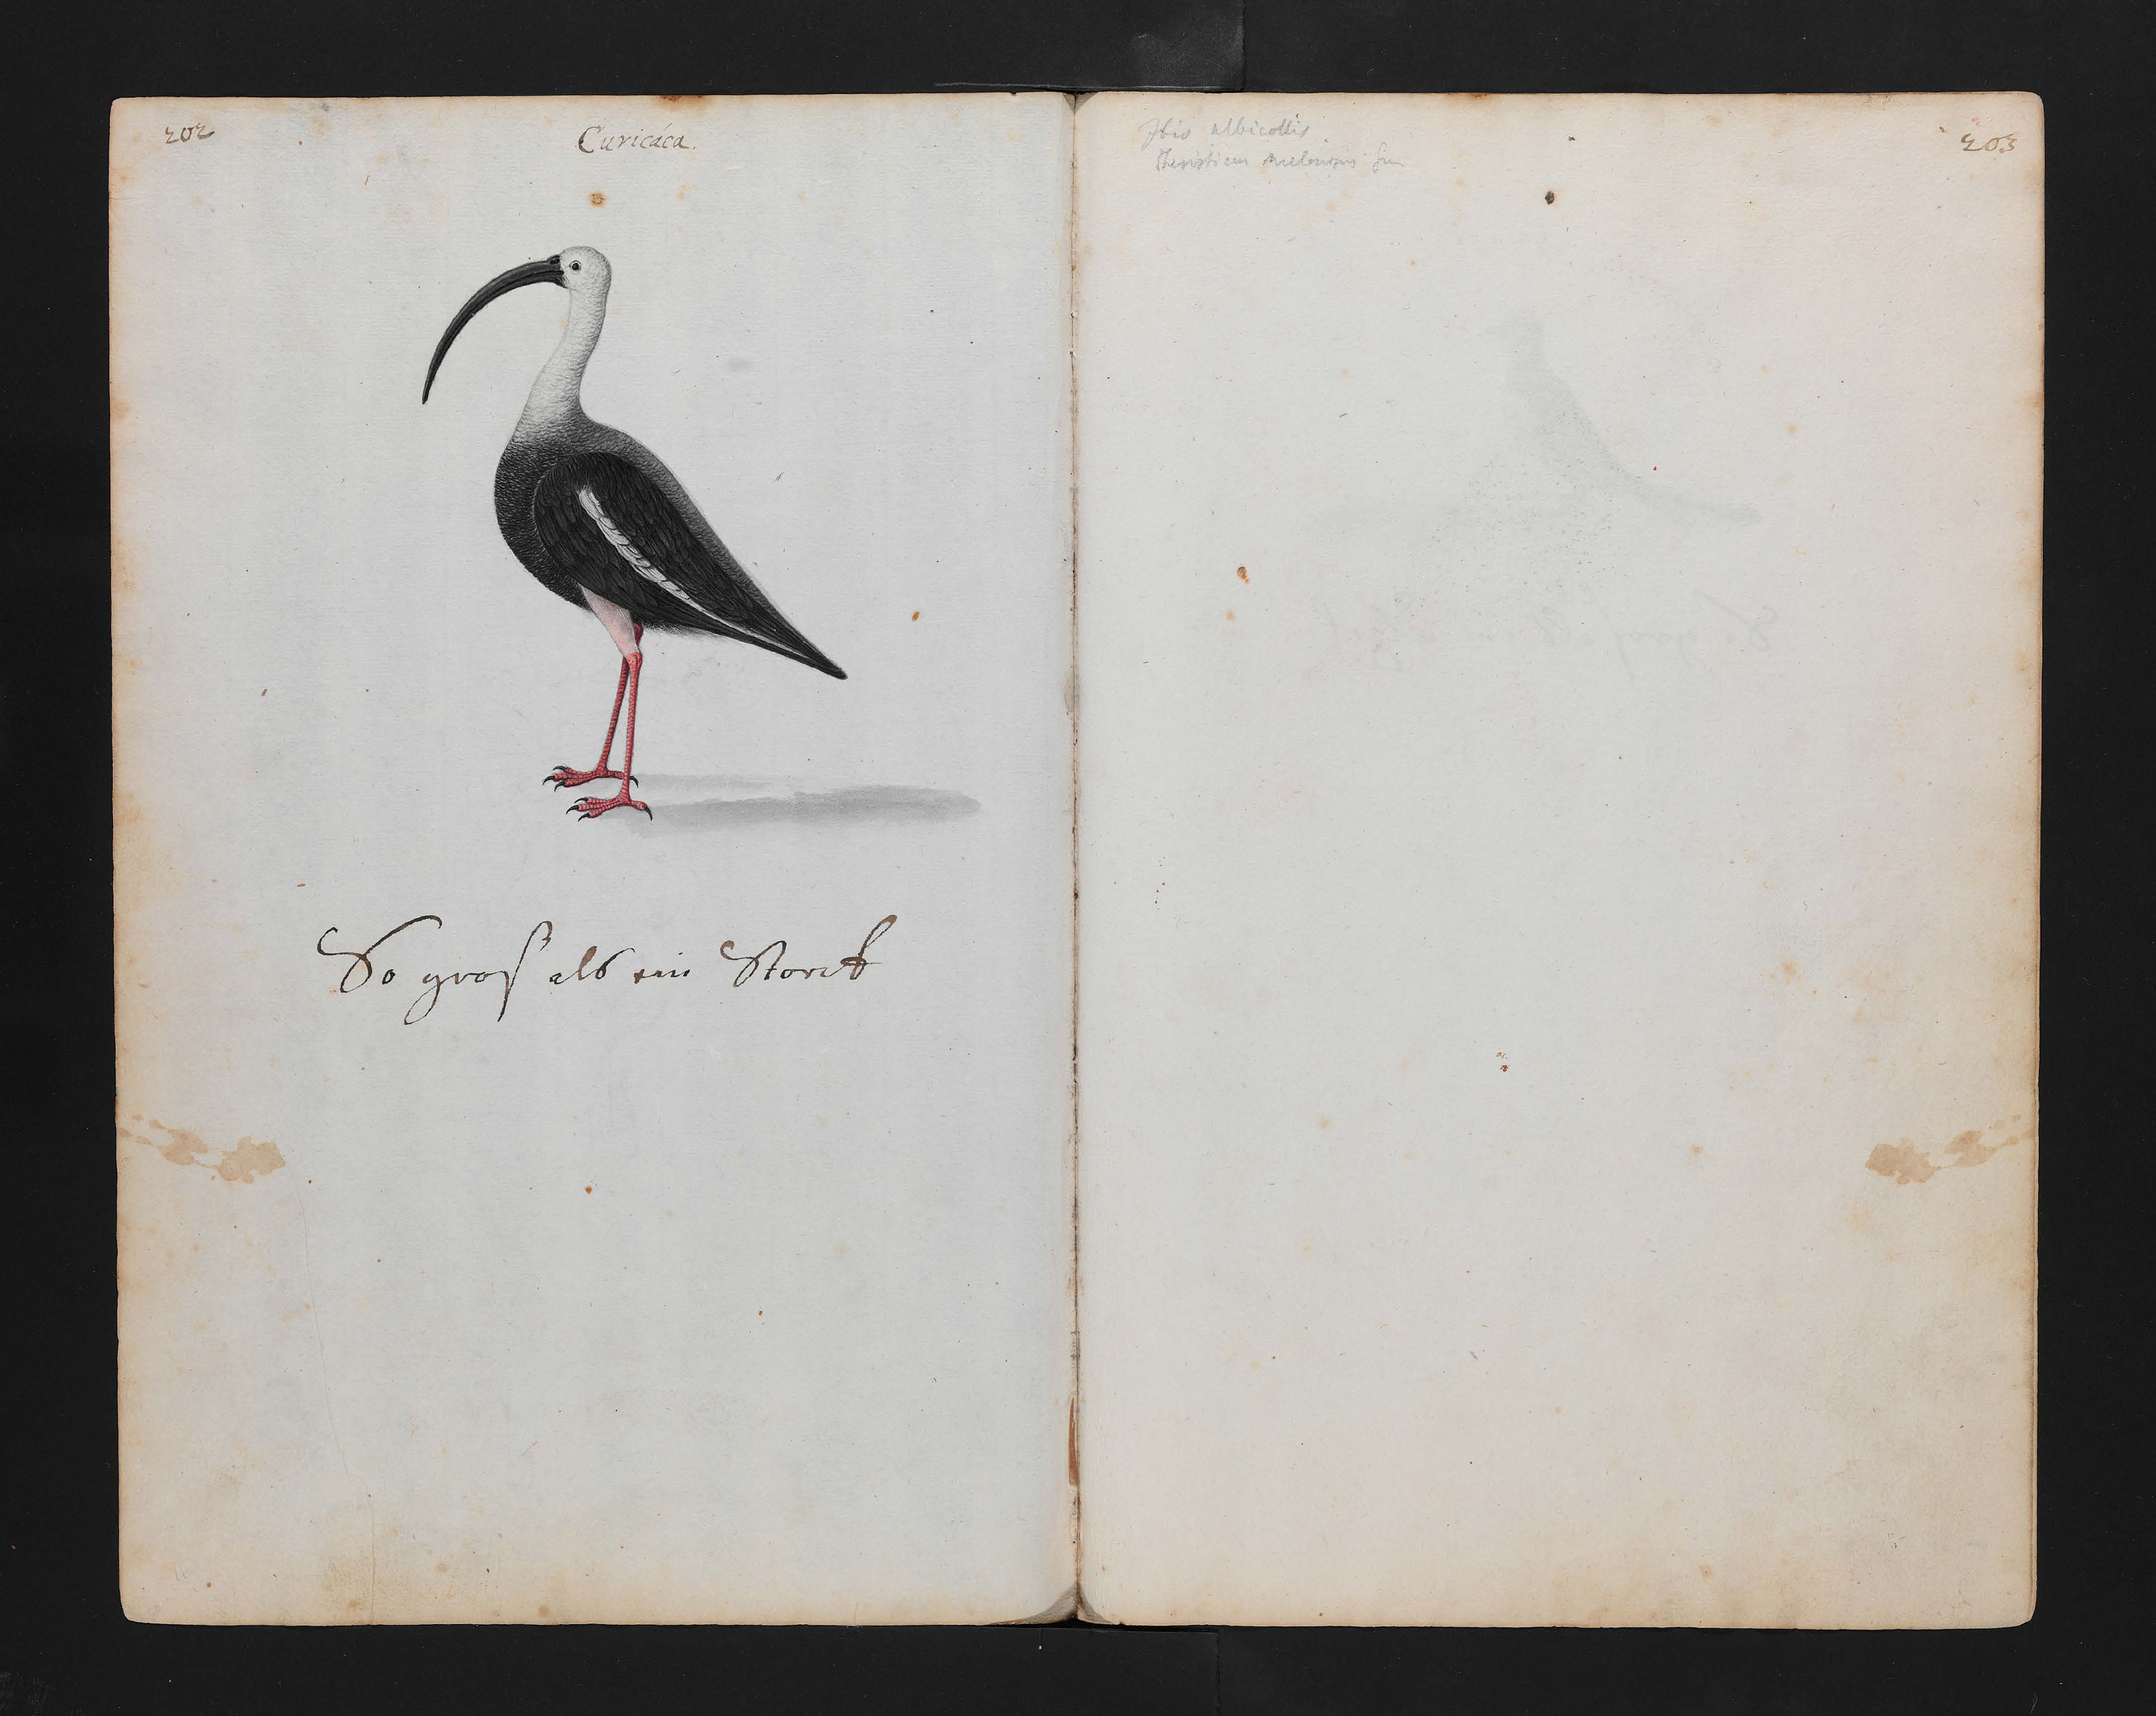 202
Curicáca.
So groß als ein Storck
Ibis albicollis
Theristicus
203